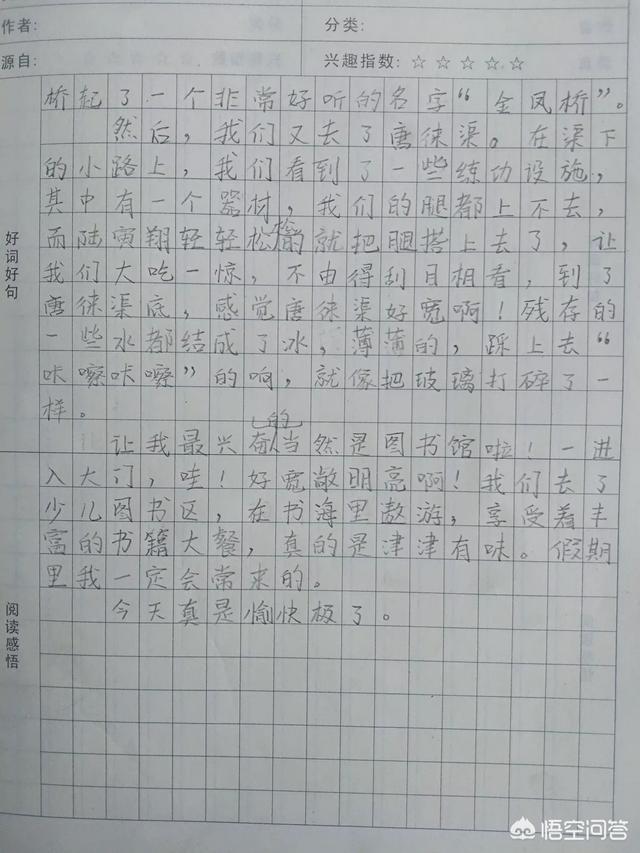 作者： 分类：
源自： 兴趣指数：☆☆☆☆☆
桥起了一个非常好听的名字“金凤桥”。
然后，我们又去了唐徕渠。在渠下
的小路上，我们看到了一些练功设施，
其中有一个器材，我们的腿都上不去，
而陆寅翔轻轻松松的就把腿搭上去了，让
我们大吃一惊，不由得刮目相看，到了
唐徕渠底，感觉唐徕渠好宽啊！残存的
一些水都结成了冰，薄薄的，踩上去“
咔嚓咔嚓”的响，就像把玻璃打碎了一
样。
让我最兴奋的当然是图书馆啦！一进
入大门，哇！好宽敞明亮啊！我们去了
少儿图书区，在书海里遨游，享受着丰
富的书籍大餐，真的是津津有味。假期
里我一定会常来的。
今天真是愉快极了。
好词好句
阅读感悟
悟空问答